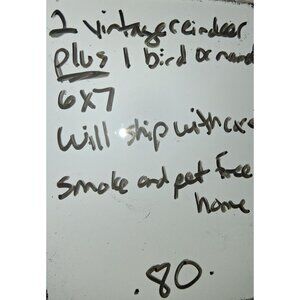 2 vintage reindeer
plus 1 bird
6x7
Will ship with care
smoke and pet free
home
.80.